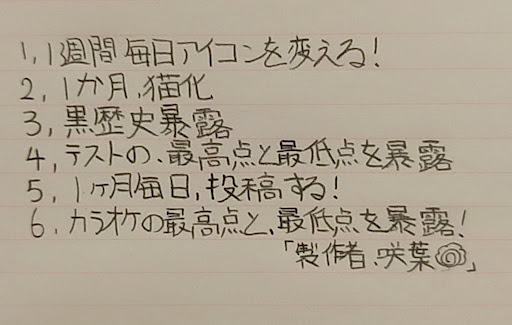 1,1週間毎日アイコンを変える!
2,1か月,猫化
3,黒歴史暴露
4,テストの、最高点と最低点を暴露
5,1ヶ月毎日,投稿する!
6,カラオケの最高点と、最低点を暴露!
「製作者、咲葉」